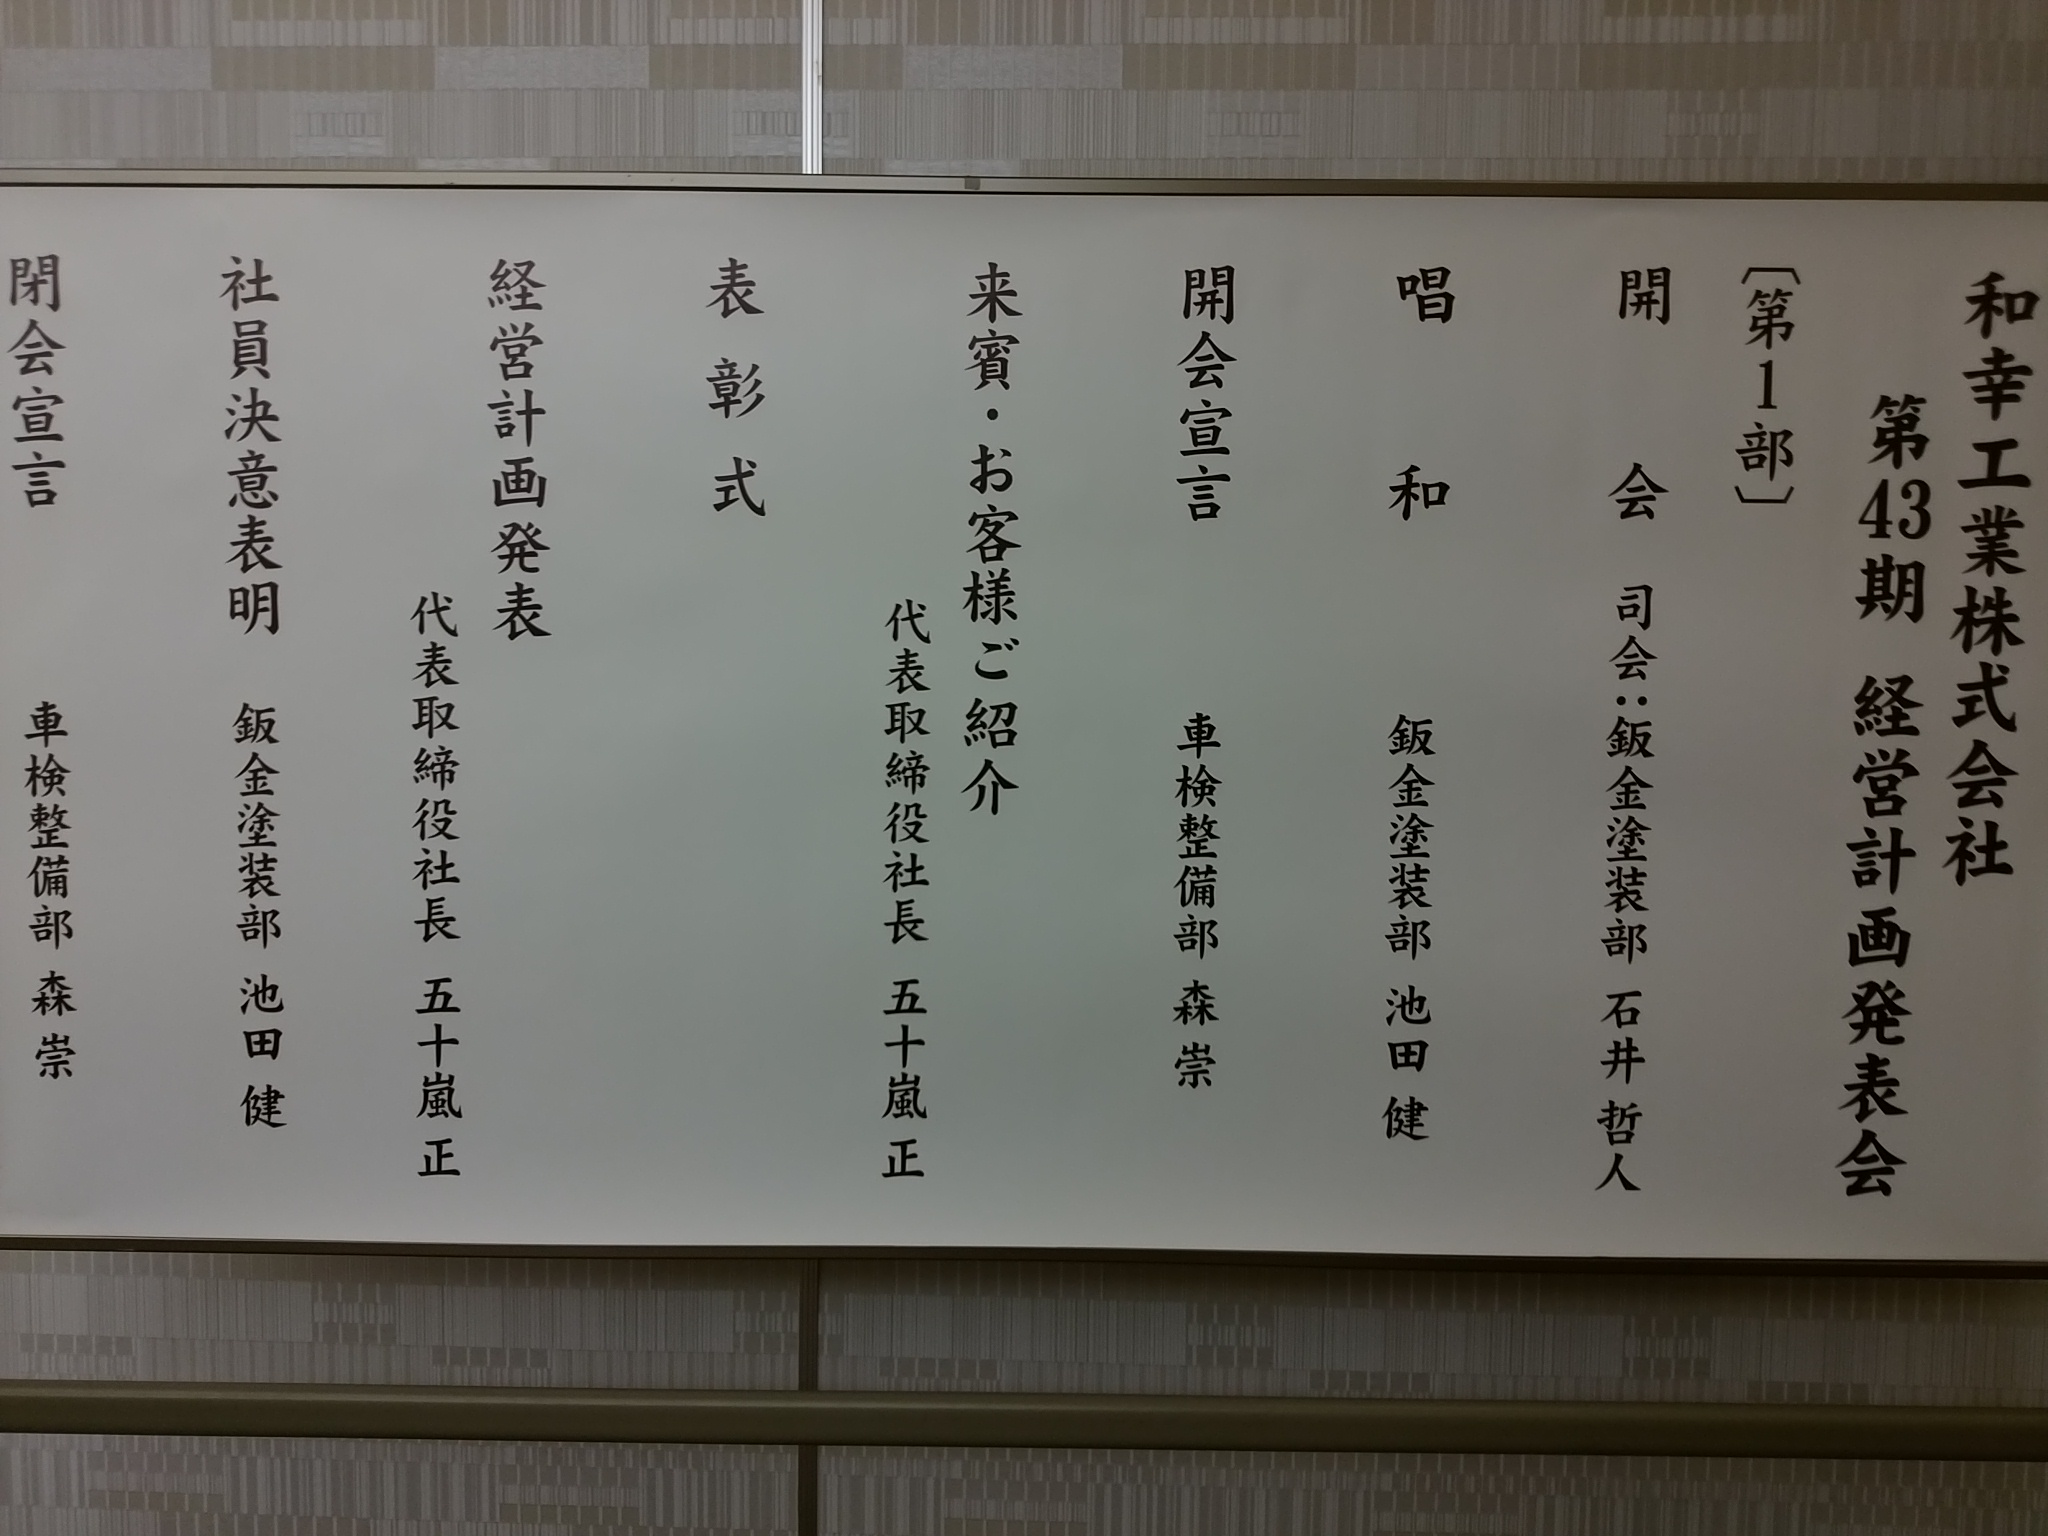 和幸工業株式会社
第43期 経営計画発表会
〔第1部〕
開会 司会:鈑金塗装部 石井 哲人
唱和 鈑金塗装部 池田 健
開会宣言 車検整備部 森 崇
来賓・お客様ご紹介
代表取締役社長 五十嵐 正
表彰式
経営計画発表
代表取締役社長 五十嵐 正
社員決意表明 鈑金塗装部 池田 健
閉会宣言 車検整備部 森 崇